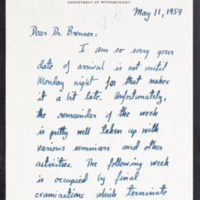 DEPARTMENT OF MICROBIOLOGY
May 11, 1959
Dear Dr. Brenner:
I am so sorry your
date of arrival is not until
Monday night for that makes
it a bit late. Unfortunately,
the remainder of the week
is pretty well taken up with
various seminars and other
activities. The following week
is occupied by final
examinations which terminate